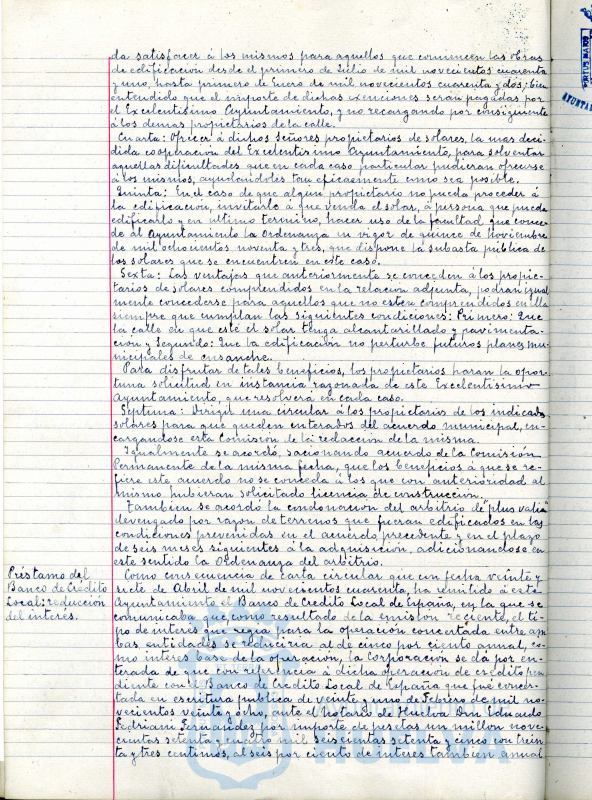 da satisfacer á los mismos para aquellos que comiencen las obras
de edificacion desde el primero de Julio de mil novecientos cuarenta
y uno, hasta primero de Enero de mil novecientos cuarenta y dos; bien
entendido que el importe de dichas exenciones serán pagadas por
el Excelentisimo Ayuntamiento, y no recargando por consiguiente
á los demas propietarios de la calle.
Cuarta: Ofrecer á dichos Señores propietarios de solares, la mas deci-
dida cooperacion del Excelentisimo Ayuntamiento, para solventar
aquellas dificultades que en cada caso particular pudieran ofrecerse
á los mismos, ayudandoles tan eficaemente como sea posible.
Quinta: En el caso de que algun propietario no pueda proceder á
la edificacion, invitarle á que venda el solar, á persona que pueda
edificarlo y en ultimo termino, hacer uso de la facultad que conce-
de al Ayuntamiento la Ordenanza en vigor de quince de Noviembre
de mil ochocientos noventa y tres, que dispone la subasta pública de
los solares que se encuentren en este caso.
Sexta: Las ventajas que anteriormente se conceden á los propie-
tarios de solares comprendidos en la relacion adjunta, podran igual
mente concederse para aquellos que no esten comprendidos en ella
siempre que cumplan las siguientes condiciones: Primero: Que
la calle en que esté el solar tenga alcantarillado y pavimenta-
cion y Segundo: Que la edificacion no perturbe futuros planes mu-
nicipales de ensanche.
Para disfrutar de tales beneficios, los propietarios haran la opor-
tuna solicitud en instancia razonada de este Excelentisimo
Ayuntamiento, que resolverá en cada caso.
Septima: Dirigir una circular á los propietarios de los indicados
solares para que queden enterados del acuerdo municipal, en-
cargandose esta Comision de la redaccion de la misma.
Igualmente se acordó, sacionando acuerdo de la Comisión
Permanente de la misma fecha, que los beneficios á que se re-
fiere este acuerdo no se conceda á los que con anterioridad al
mismo hubieran solicitado licencia de construccion.
Tambien se acordó la condonacion del arbitrio de "plus valia"
devengado por razon de terrenos que fueran edificados en las
condiciones prevenidas en el acuerdo precedente y en el plazo
de seis meses siguientes á la adquisicion, adicionandose en
este sentido la Ordenanza del arbitrio.
Préstamo del
Banco de Crédito
Local: reducción
del interes.
Como consecuencia de carta circular que con fecha veinte y
siete de Abril de mil novecientos cuarenta, ha remitido á este
Ayuntamiento el Banco de Credito Local de España, en la que se
comunicaba que, como resultado de la emision reciente, el ti-
po de interes que regia para la operacion concertada entre am
bas entidades se reduciria al de cinco por ciento annal, co-
mo interes base de la operacion, la Corporacion se dá por en-
terada de que con referencia á dicha operacion de crédito pen
diente con el Banco de Credito Local de España que fué concer-
tada en escritura publica de veinte y uno de Febrero de mil no-
vecientos veinte y ocho, ante el notario de Huelva Don Eduardo
Fedriani Fernandez por importe de pesetas un millon nove-
cientas setenta y cuatro mil seiscientas setenta y cinco con trein
ta y tres centimos, al seis por ciento de interes tambien annal